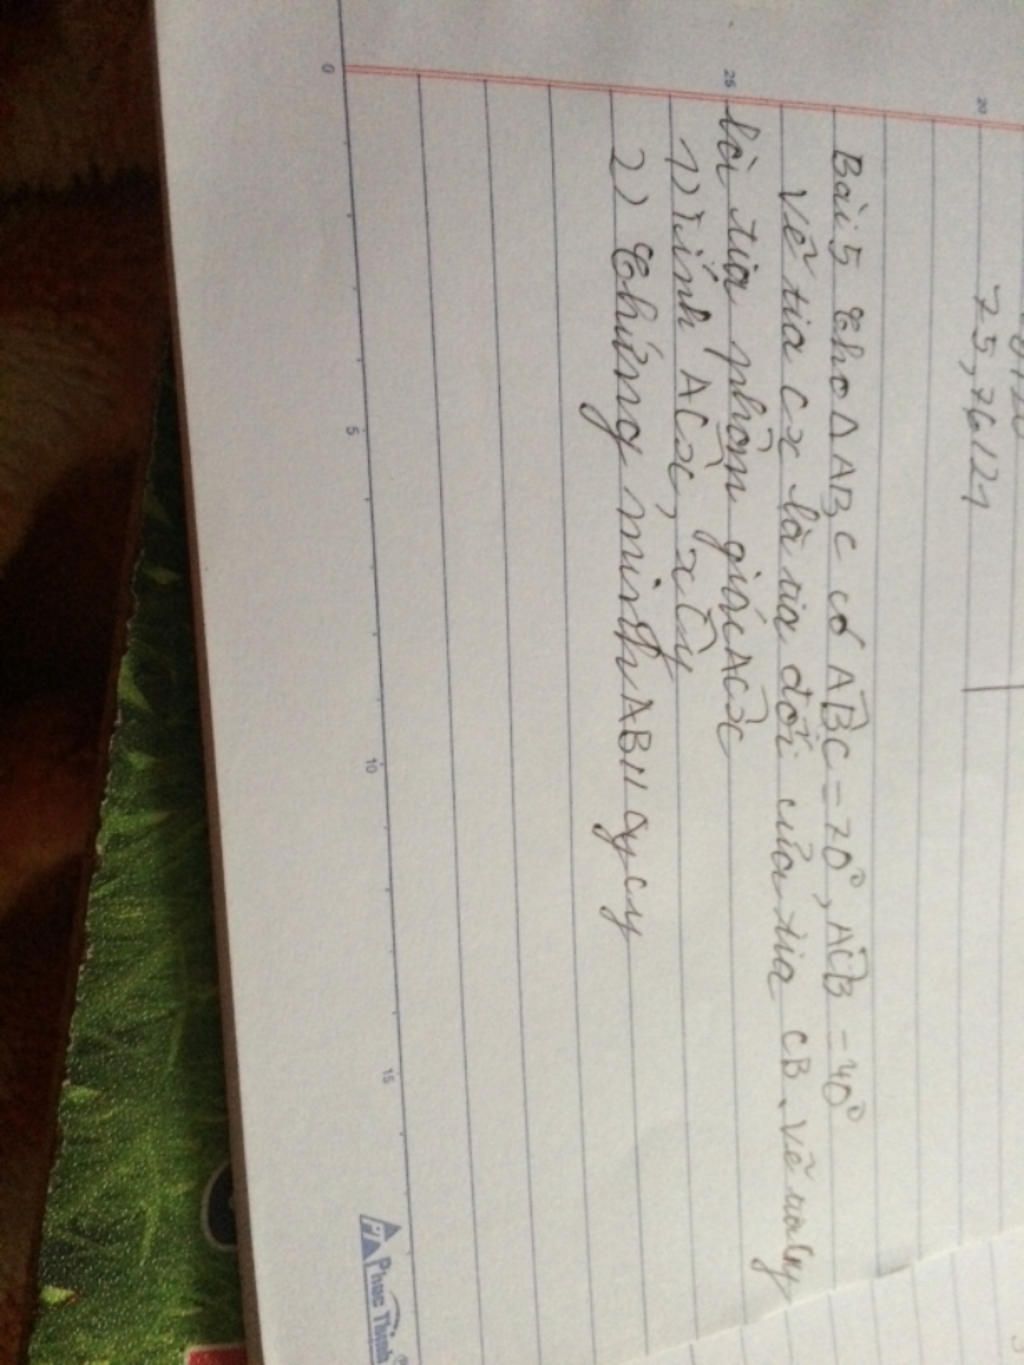 75,76121
Bài 5 Cho Δ ABC có ABC = 70°, ACB = 40°
Vẽ tia Cx là tia đối của tia CB. Vẽ tia Cy
là tia phân giác ACx
1) Tính ACx, xCy
2) Chứng minh AB // Cy
20
25
0
5
10
15
Phuc Thinh